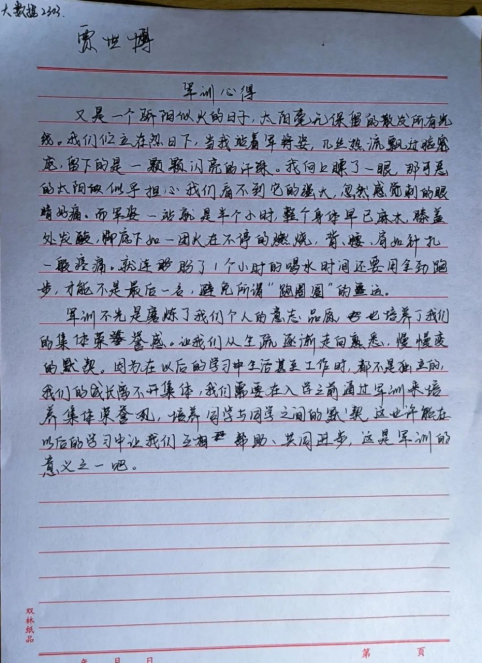 大数据2303.
贾世博
军训心得
又是一个骄阳似火的日子,太阳毫无保留的散发所有光
线。我们伫立在烈日下,当我站着军将姿,几丝热流飘过脸
庞,留下的是一颗颗闪亮的汗珠。我向上瞟了一眼,那可恶
的太阳似乎担心我们看不到它的强大,忽然感觉刺的眼
睛好痛。而军姿一站就是半个小时,整个身体早已麻木,膝盖
处发酸,脚底下如一团火在不停的燃烧,背、腰、肩如针扎
一般疼痛。就连盼了1个小时的喝水时间还要用全劲跑
步,才能不是最后一名,避免所谓“跑圈圈”的噩运。
军训不光是磨炼了我们个人的意志品质,也培养了我们
的集体荣誉感。让我们从生疏逐渐走向熟悉,慢慢变
的默契。因为在以后的学习中生活甚至工作时,都不是独立的,
我们的成长离不开集体,我们需要在入学之前通过军训来培
养集体荣誉观,培养同学与同学之间的默契,这也许能在
以后的学习中让我们互相帮助、共同进步,这是军训的
意义之一吧。
双林纸品
年 月 日
第 页